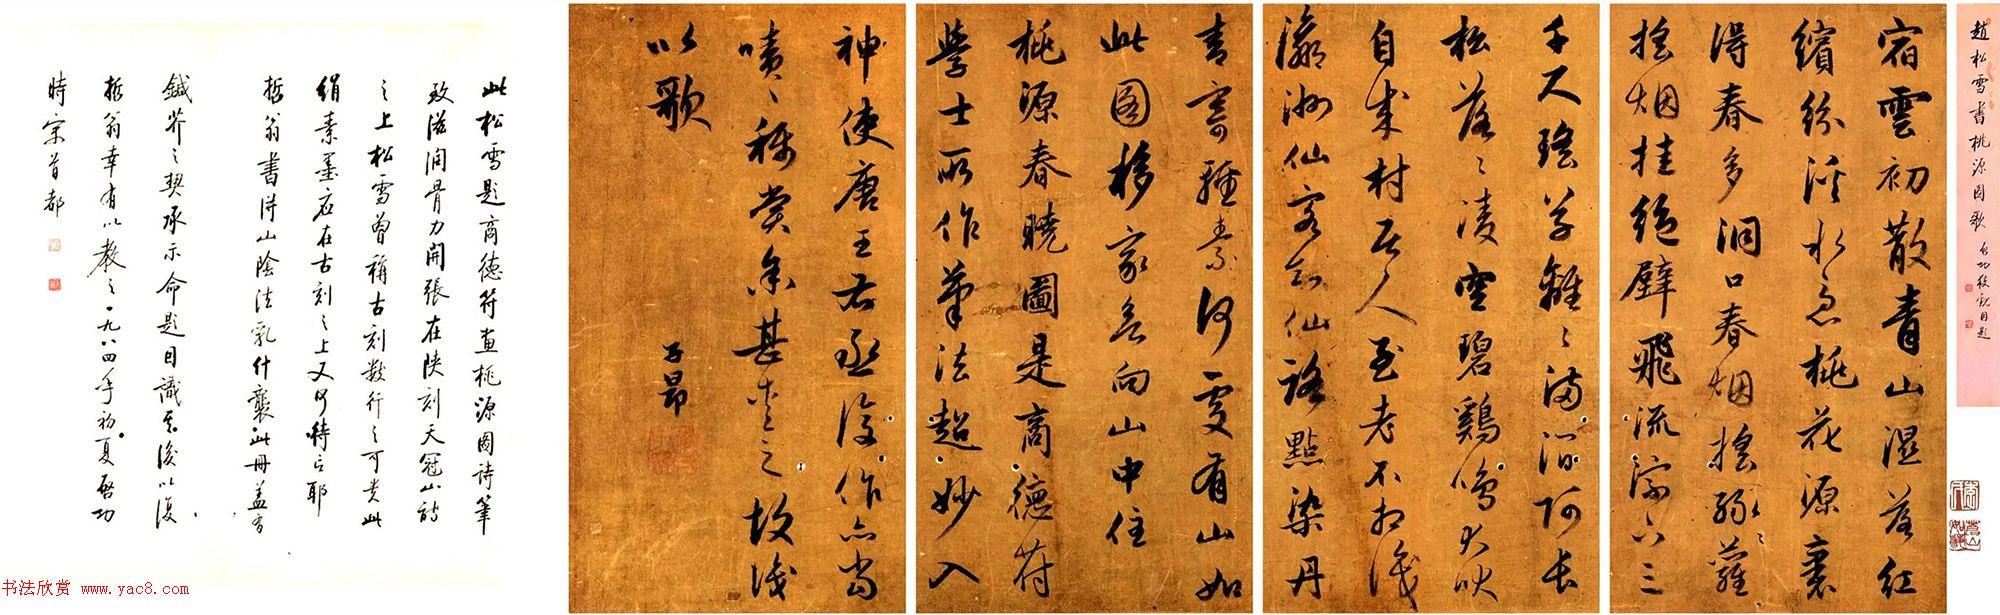 趙松雪書桃源圖歌 啟功獲觀因題
宿雲初散青山濕落紅
繽紛溪水急桃花源裏
得春多洞口春烟搖綠蘿
綠蘿搖烟挂絕壁飛流淙下三
千尺瑤草離離滿澗阿長
松落落凌空碧雞鳴犬吠
自成村居人至老不相識
瀛洲仙客知仙路點染丹
青寄輕素何處有山如
此图移家欲向山中住
桃源春曉圖是商德符
學士所作筆法超妙入
神使唐王右丞復作亦當
嘖嘖稱賞余甚愛之故識
以歌
子昂
此松雪題商德符畫桃源圖詩筆
致滋潤骨力開張在陝刻天冠山詩
之上松雪曾稱古刻數行之可貴此
絹素墨跡在古刻之上又何待言耶
哲翁書得山陰法乳什襲此冊蓋有
鍼芥之契承示命題因識其後以復
哲翁幸有以教之一九八四年初夏啟功
時寓首都
书法欣赏 www.yac8.com